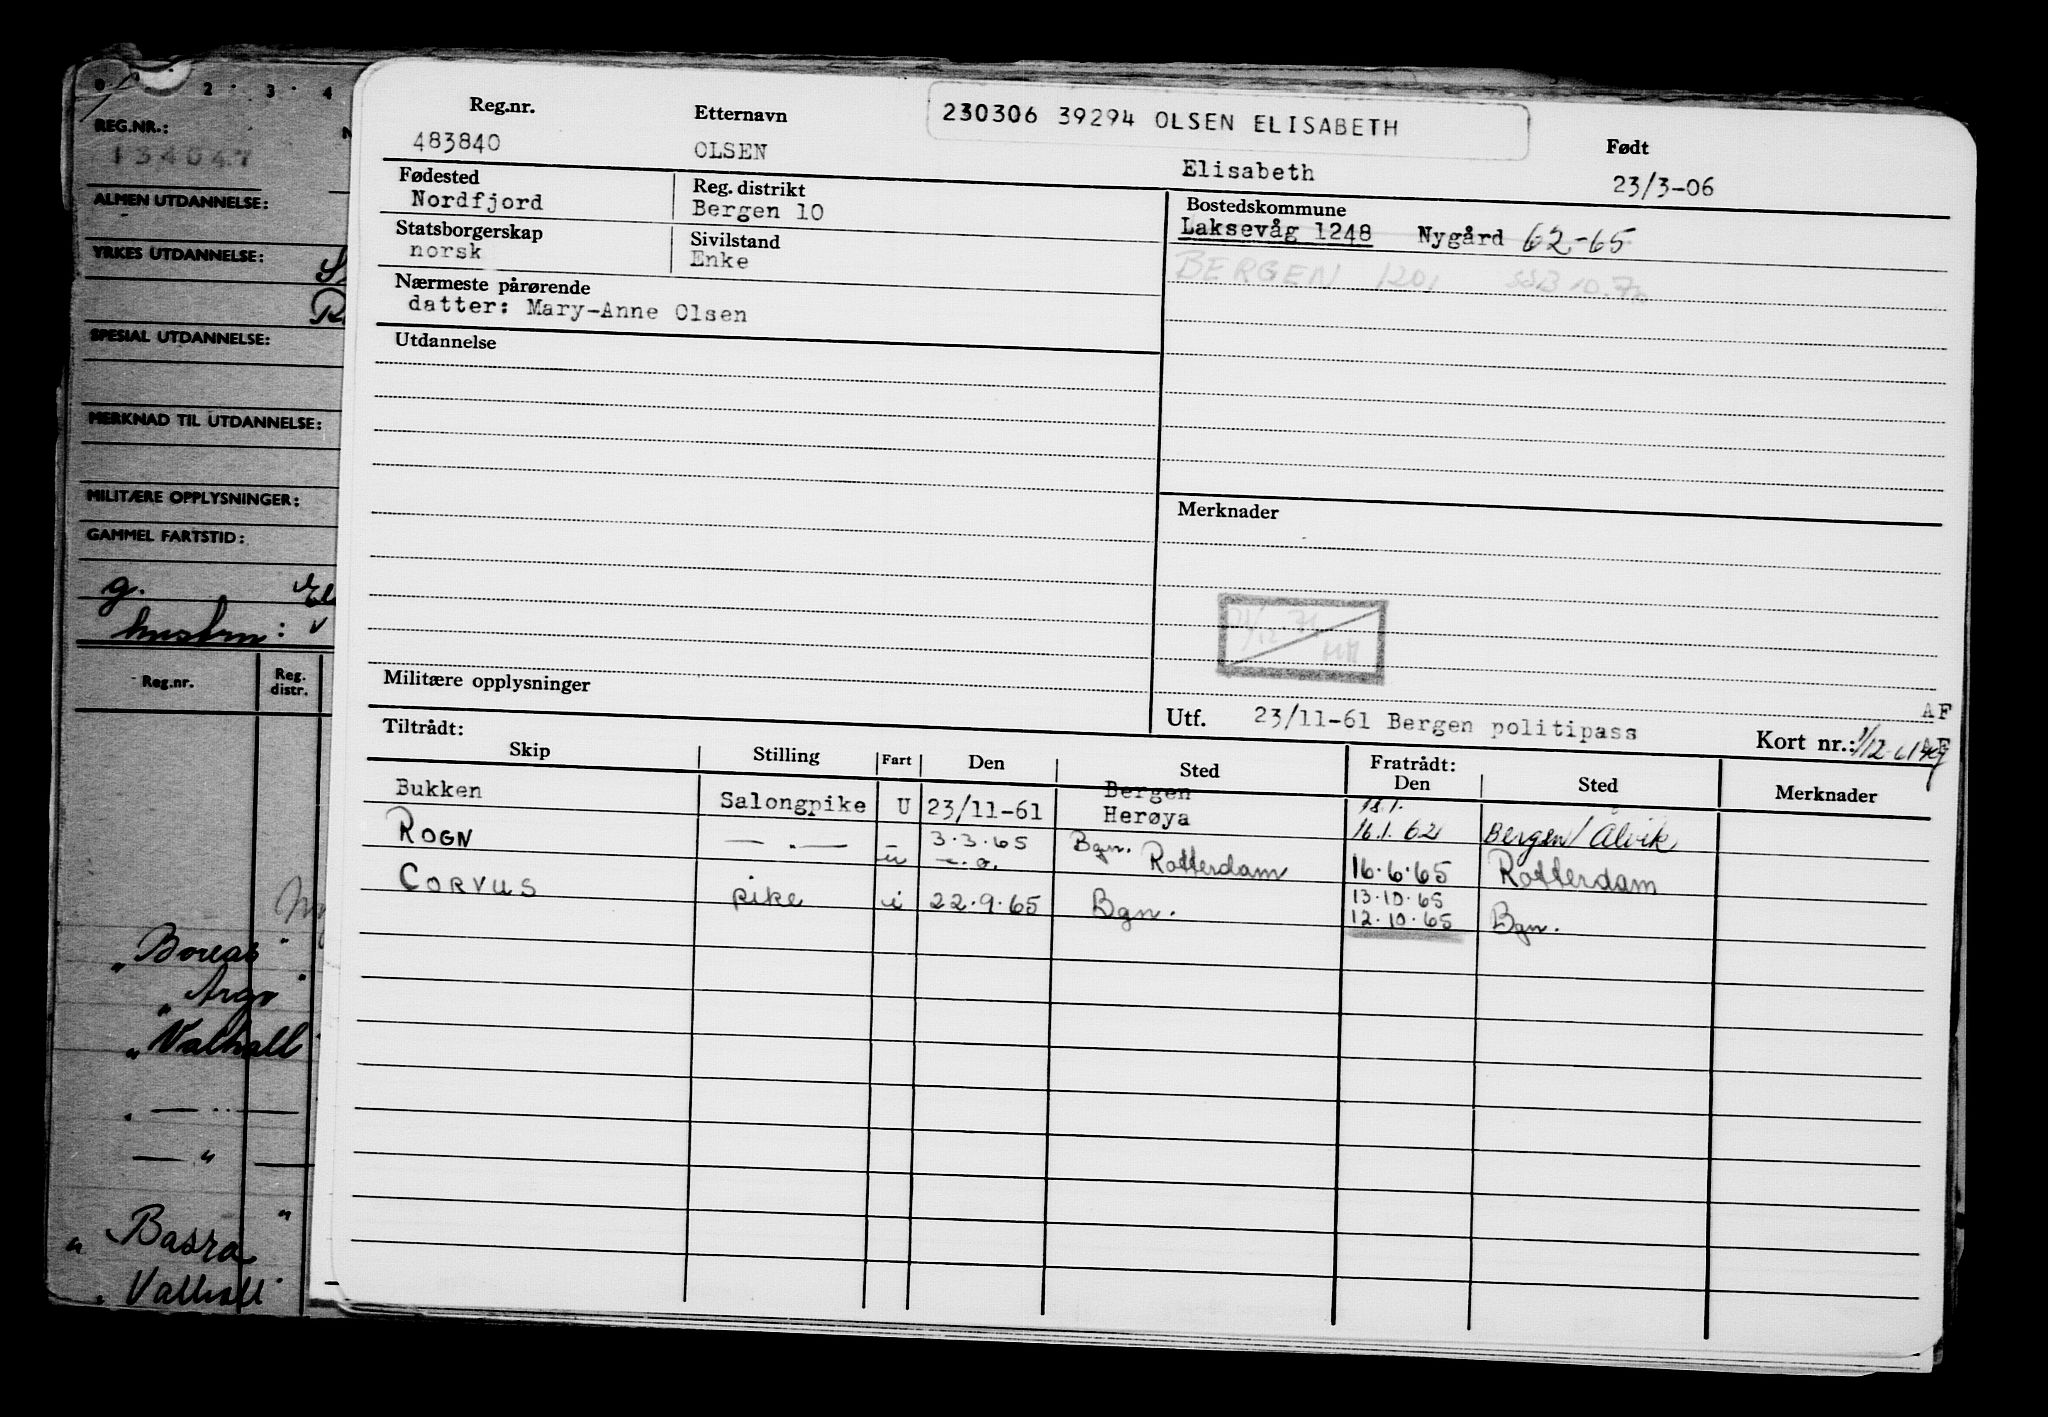 2 3 4
REG.NR.:
134047
ALMEN UTDANNELSE:
YRKES UTDANNELSE:
SPESIAL UTDANNELSE:
MERKNAD TIL UTDANNELSE:
MILITÆRE OPPLYSNINGER:
GAMMEL FARTSTID:
g.
hustru:
Reg.nr. Reg. distr.
"Boreas"
"Argo"
"Valhall"
"Basra"
"Valhall"
230306 39294 OLSEN ELISABETH
Reg.nr. Etternavn Født
483840 OLSEN Elisabeth 23/3-06
Fødested Reg. distrikt Bostedskommune
Nordfjord Bergen 10 Laksevåg 1248 Nygård 62-65
Statsborgerskap Sivilstand
norsk Enke BERGEN 1201 SSB 10.70
Nærmeste pårørende
datter: Mary-Anne Olsen
Utdannelse
Merknader
Militære opplysninger
AF
Utf. 23/11-61 Bergen politipass
Kort nr.:
Tiltrådt: Fratrådt:
Skip Stilling Fart Den Sted Den Sted Merknader
Bergen 18.1.
Bukken Salongpike U 23/11-61 Herøya 16.1.62 Bergen/Ålvik
ROGN — " — 3.3.65 Bgn.
u Rotterdam 16.6.65 Rotterdam
CORVUS pike i 22.9.65 Bgn. 13.10.65
12.10.65 Bgn.